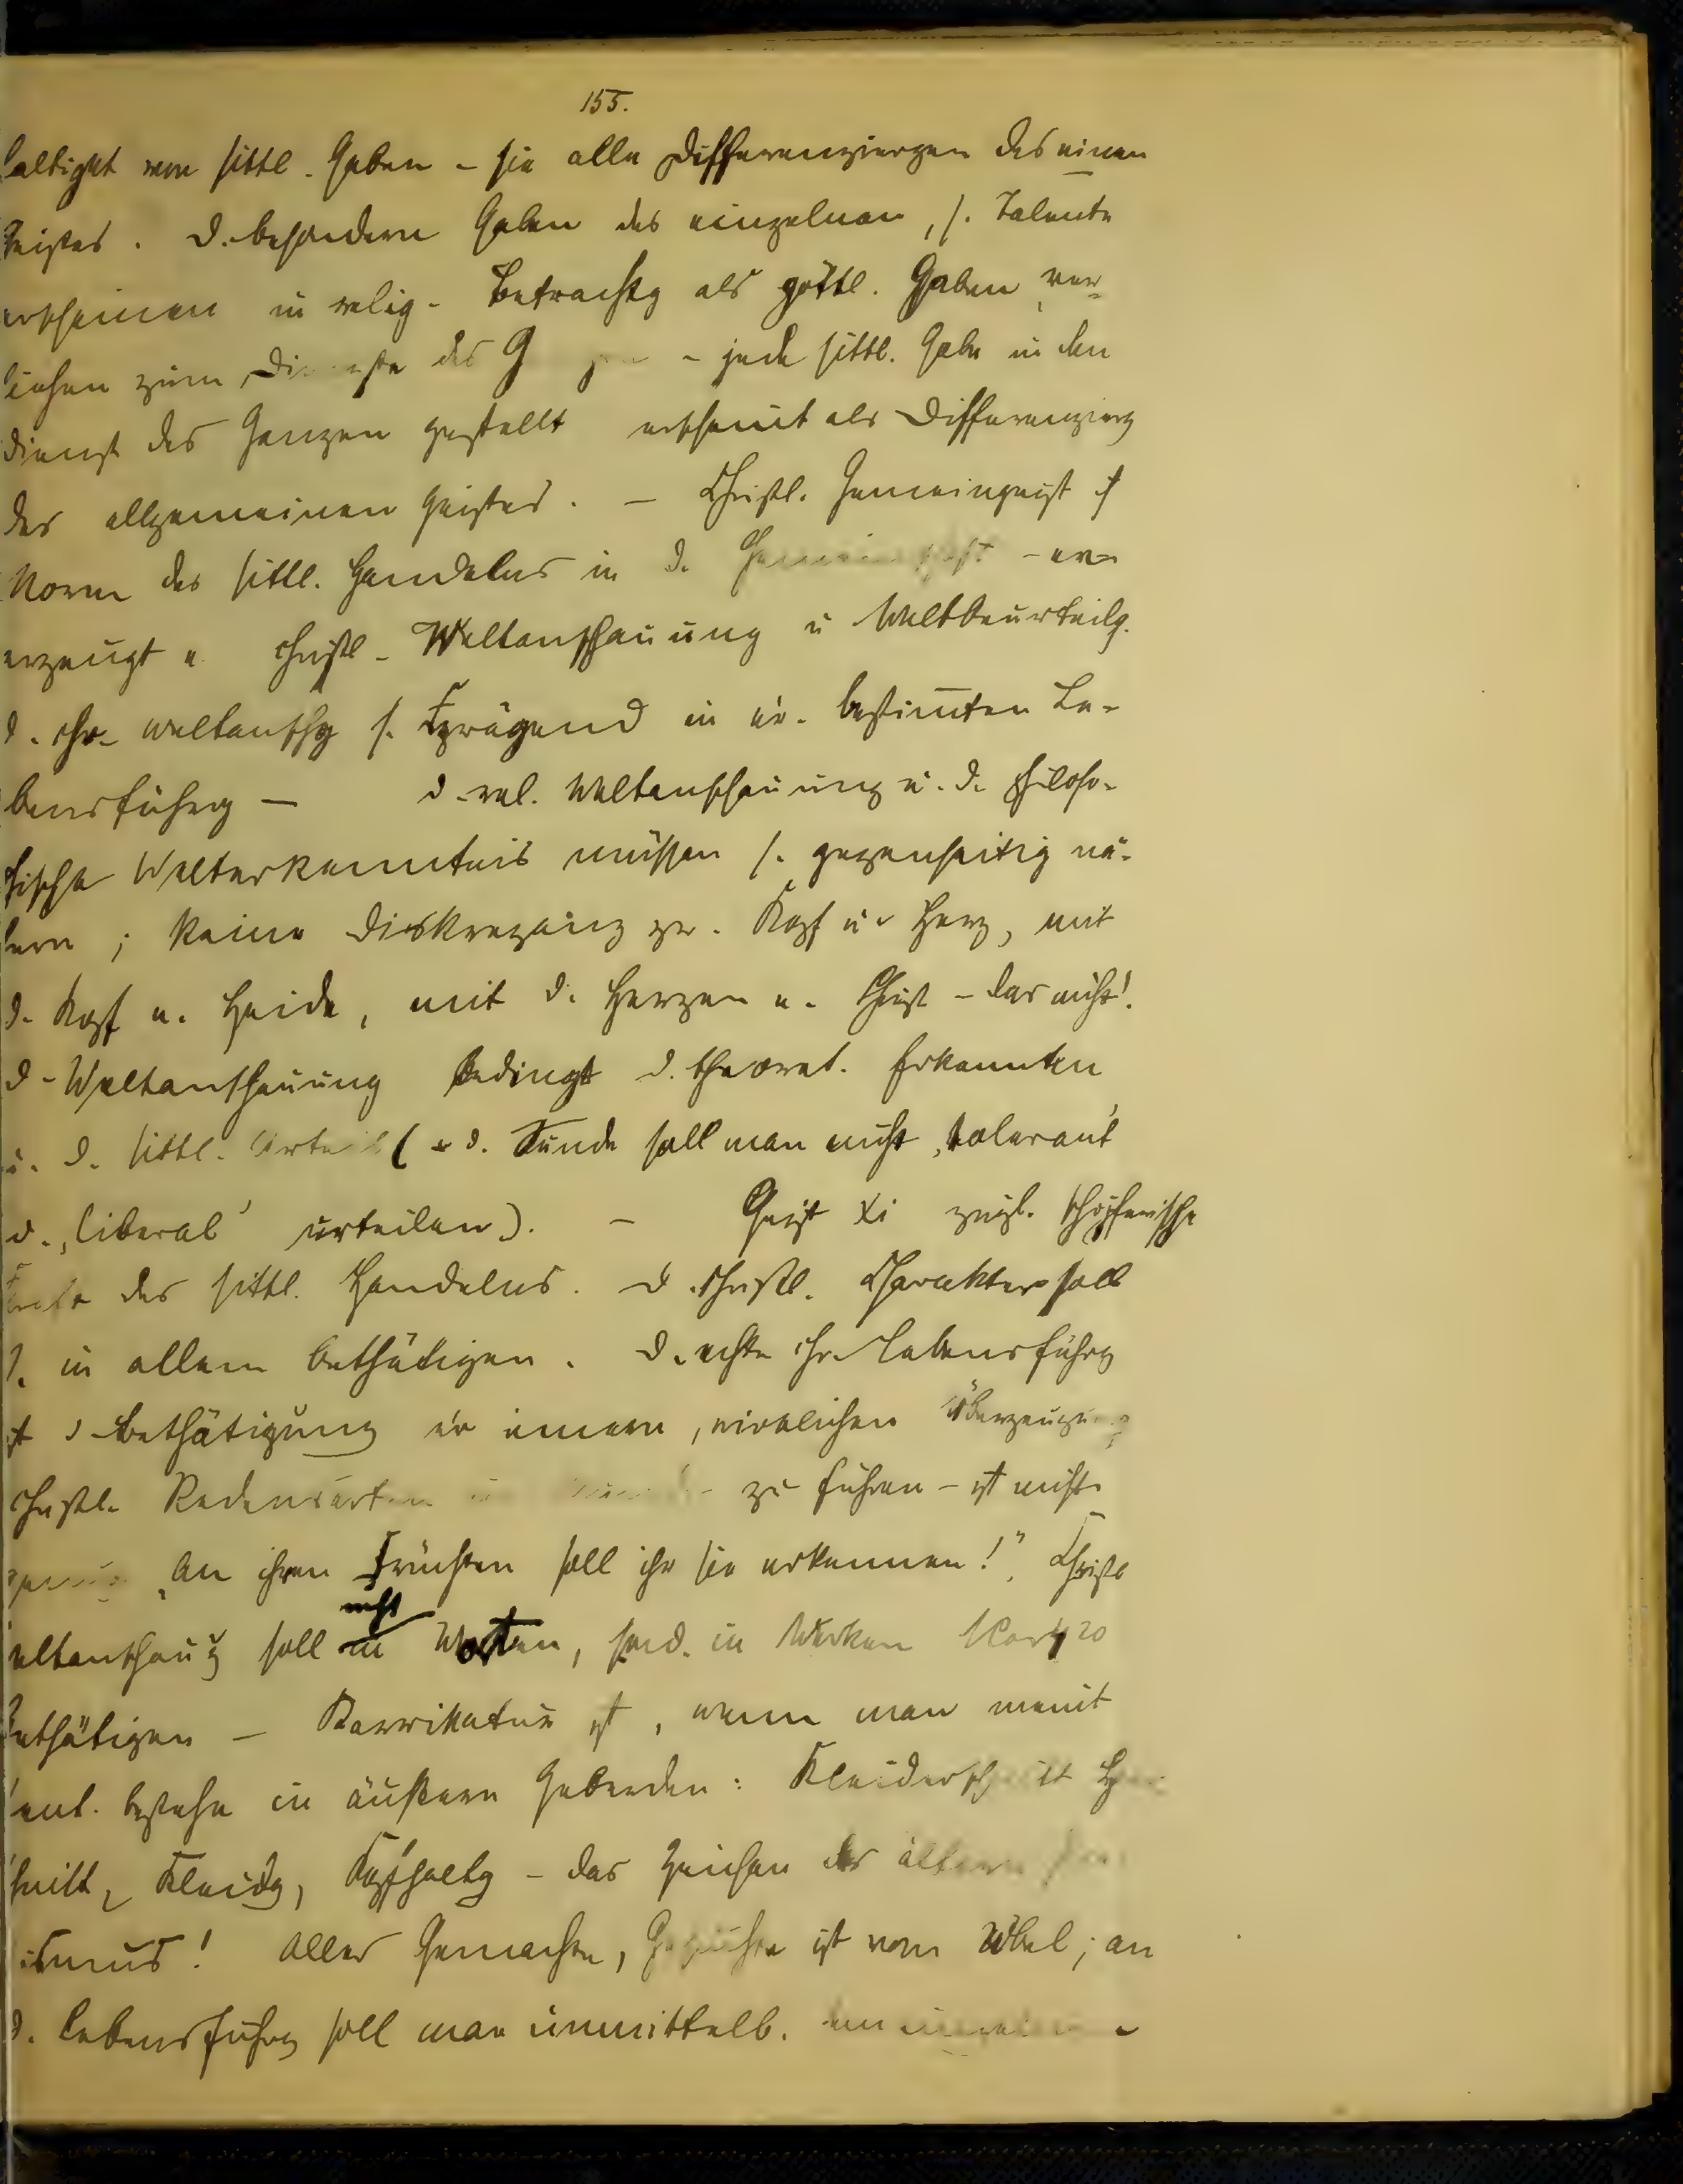 155.
faltigkt von sittl. Gaben – sie alle Differenziergen des einen
Geistes. D. besondern Gaben des einzelnen, s. Talente
erscheinen in relig. Betrachtg als göttl. Gaben ver-
liehen zum Dienste des G – jede sittl. Gabe in den
Dienst des Ganzen gestellt erscheint als Differenzierg
des allgemeinen Geistes. – Christl. Gemeingeist ist
Norm des sittl. Handelns in d. Gemeinschaft – er
erzeugt e. christl. Weltanschauung u Weltbeurteilg.
d. chr. Weltanschg s. in er. bestimmten Le-
bensführg – d. rel. Weltanschauung u. d. philoso-
phische Welterkenntnis müssen s. gegenseitig nä-
hern; keine Diskrepanz zw. Kopf u. Herz, mit
d. Kopf e. Heide, mit d. Herzen e. Christ – das nicht!
d. Weltanschauung bedingt d. theoret. Erkennten
u. d. sittl. Urteil ( d. Sünde soll man nicht ‚tolerant'
u. ‚liberal' urteilen). – Geist Xi zugl. schöpferische
Kraft des sittl. Handelns. D. christl. Charakter soll
s. in allem bethätigen. D. echte chr. Lebensführg
ist d. Bethätigung er innern, wirklichen Überzeugung
christl. Redensarten zu führen – ist nicht
genug „An ihren Früchten soll ihr sie erkennen!". Christl
Weltanschauung soll nicht in Worten, sond. in Werken
bethätigen – Karrikatur ist, wenn man meint
bestehe in äußern Geberden: Kleiderschnitt
schnitt, Kleidg, Kopfhaltg – das Zeichen des ältern
ismus! Alles Gemachte, Gesuchte ist vom Übel; an
d. Lebensführg soll man unmittelb.